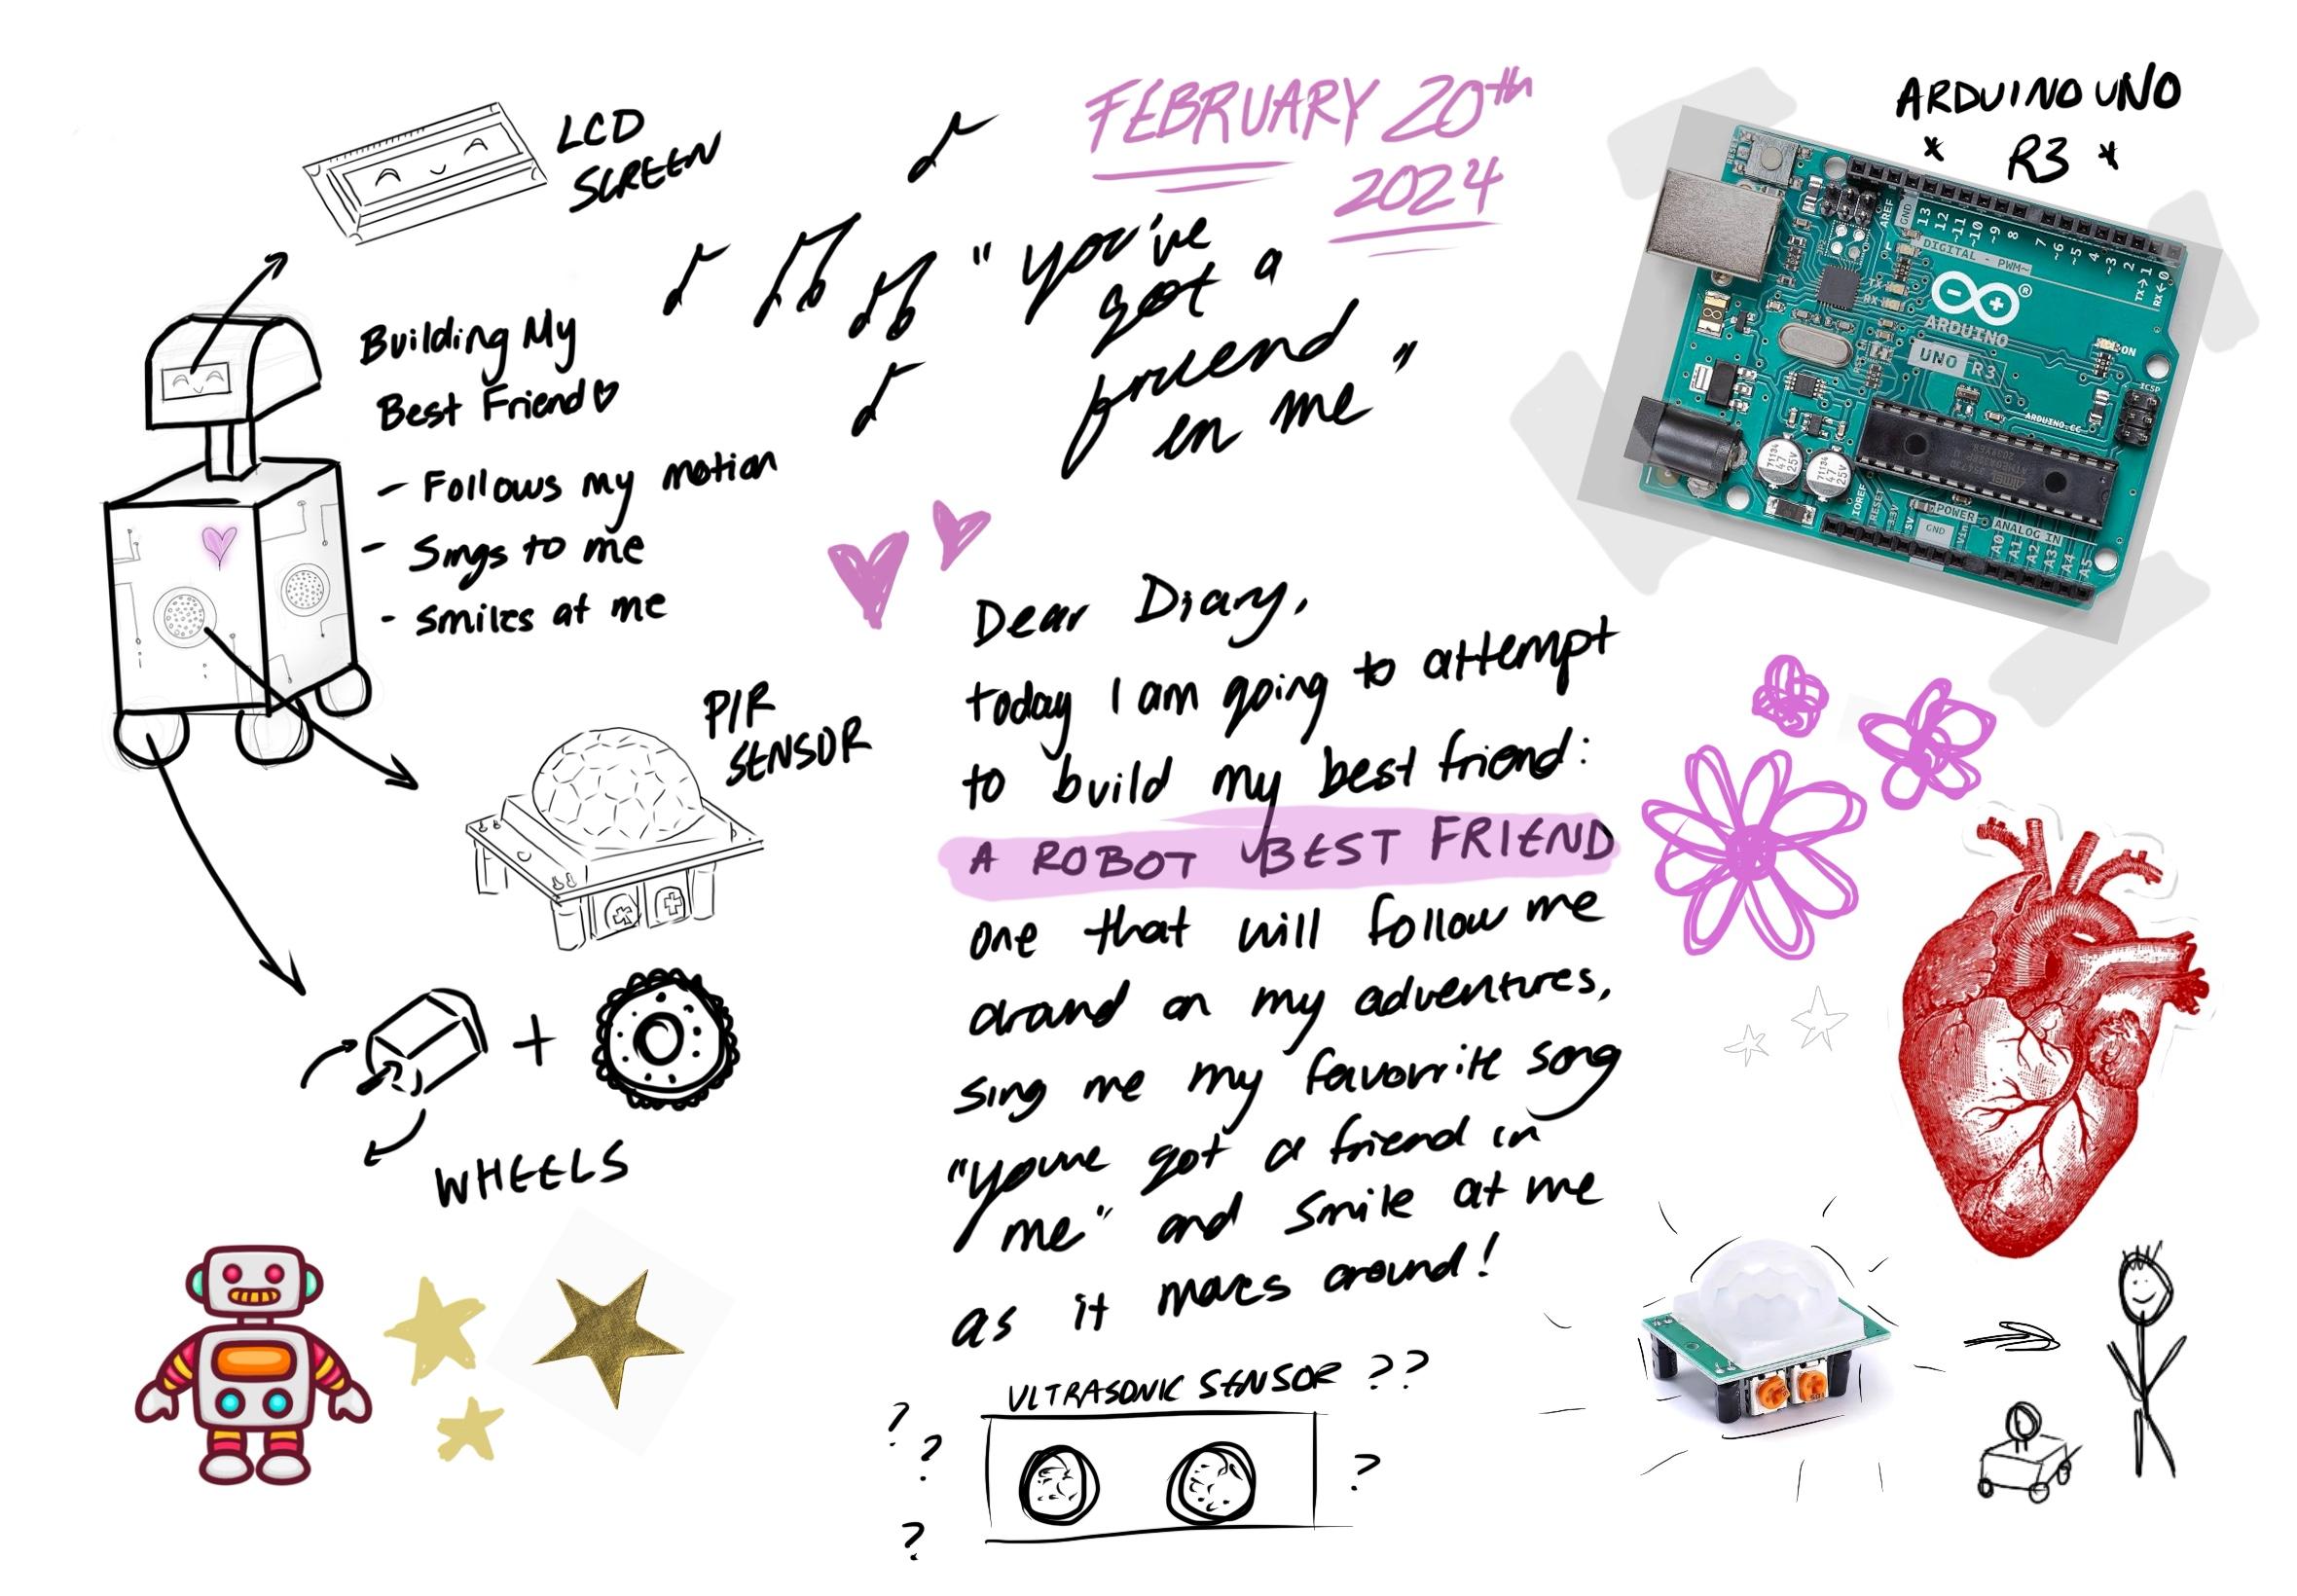 FEBRUARY 20th
2024
LCD
SCREEN
"you've
got a
friend
in me"
ARDUINO UNO
* R3 *
Building My
Best Friend♡
- Follows my motion
- Sings to me
- Smiles at me
PIR
SENSOR
WHEELS
Dear Diary,
today I am going to attempt
to build my best friend:
A ROBOT BEST FRIEND
one that will follow me
around on my adventures,
sing me my favorite song
"youve got a friend in
me" and smile at me
as it moves around!
ULTRASONIC SENSOR ??
? ? ? ?
AREF
GND
13
12
~11
~10
~9
8
7
~6
~5
4
~3
2
TX→1
RX←0
DIGITAL - PWM~
TX
RX
ARDUINO
UNO R3
ON
ICSP
ARDUINO.CC
IOREF
RESET
3.3V
5V
GND
Vin
POWER
ANALOG IN
A0
A1
A2
A3
A4
A5
47
25V
47
25V